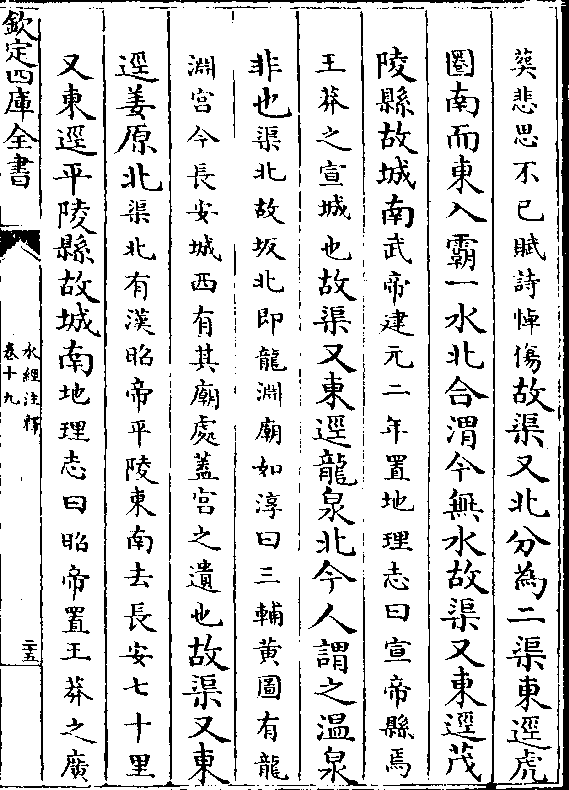 葬悲思不已賦詩悼傷故渠又北分為二渠東逕虎
圈南而東入霸一水北合渭今無水故渠又東逕茂
陵縣故城南武帝建元二年置地理志曰宣帝縣焉
王莽之宣城也故渠又東逕龍泉北今人謂之温泉
非也渠北故坂北即龍淵廟如淳曰三輔黄圖有龍
淵宫今長安城西有其廟處蓋宫之遺也故渠又東
逕姜原北渠北有漢昭帝平陵東南去長安七十里
又東逕平陵縣故城南地理志曰昭帝置王莽之廣
欽定四庫全書
水經注釋
卷十九